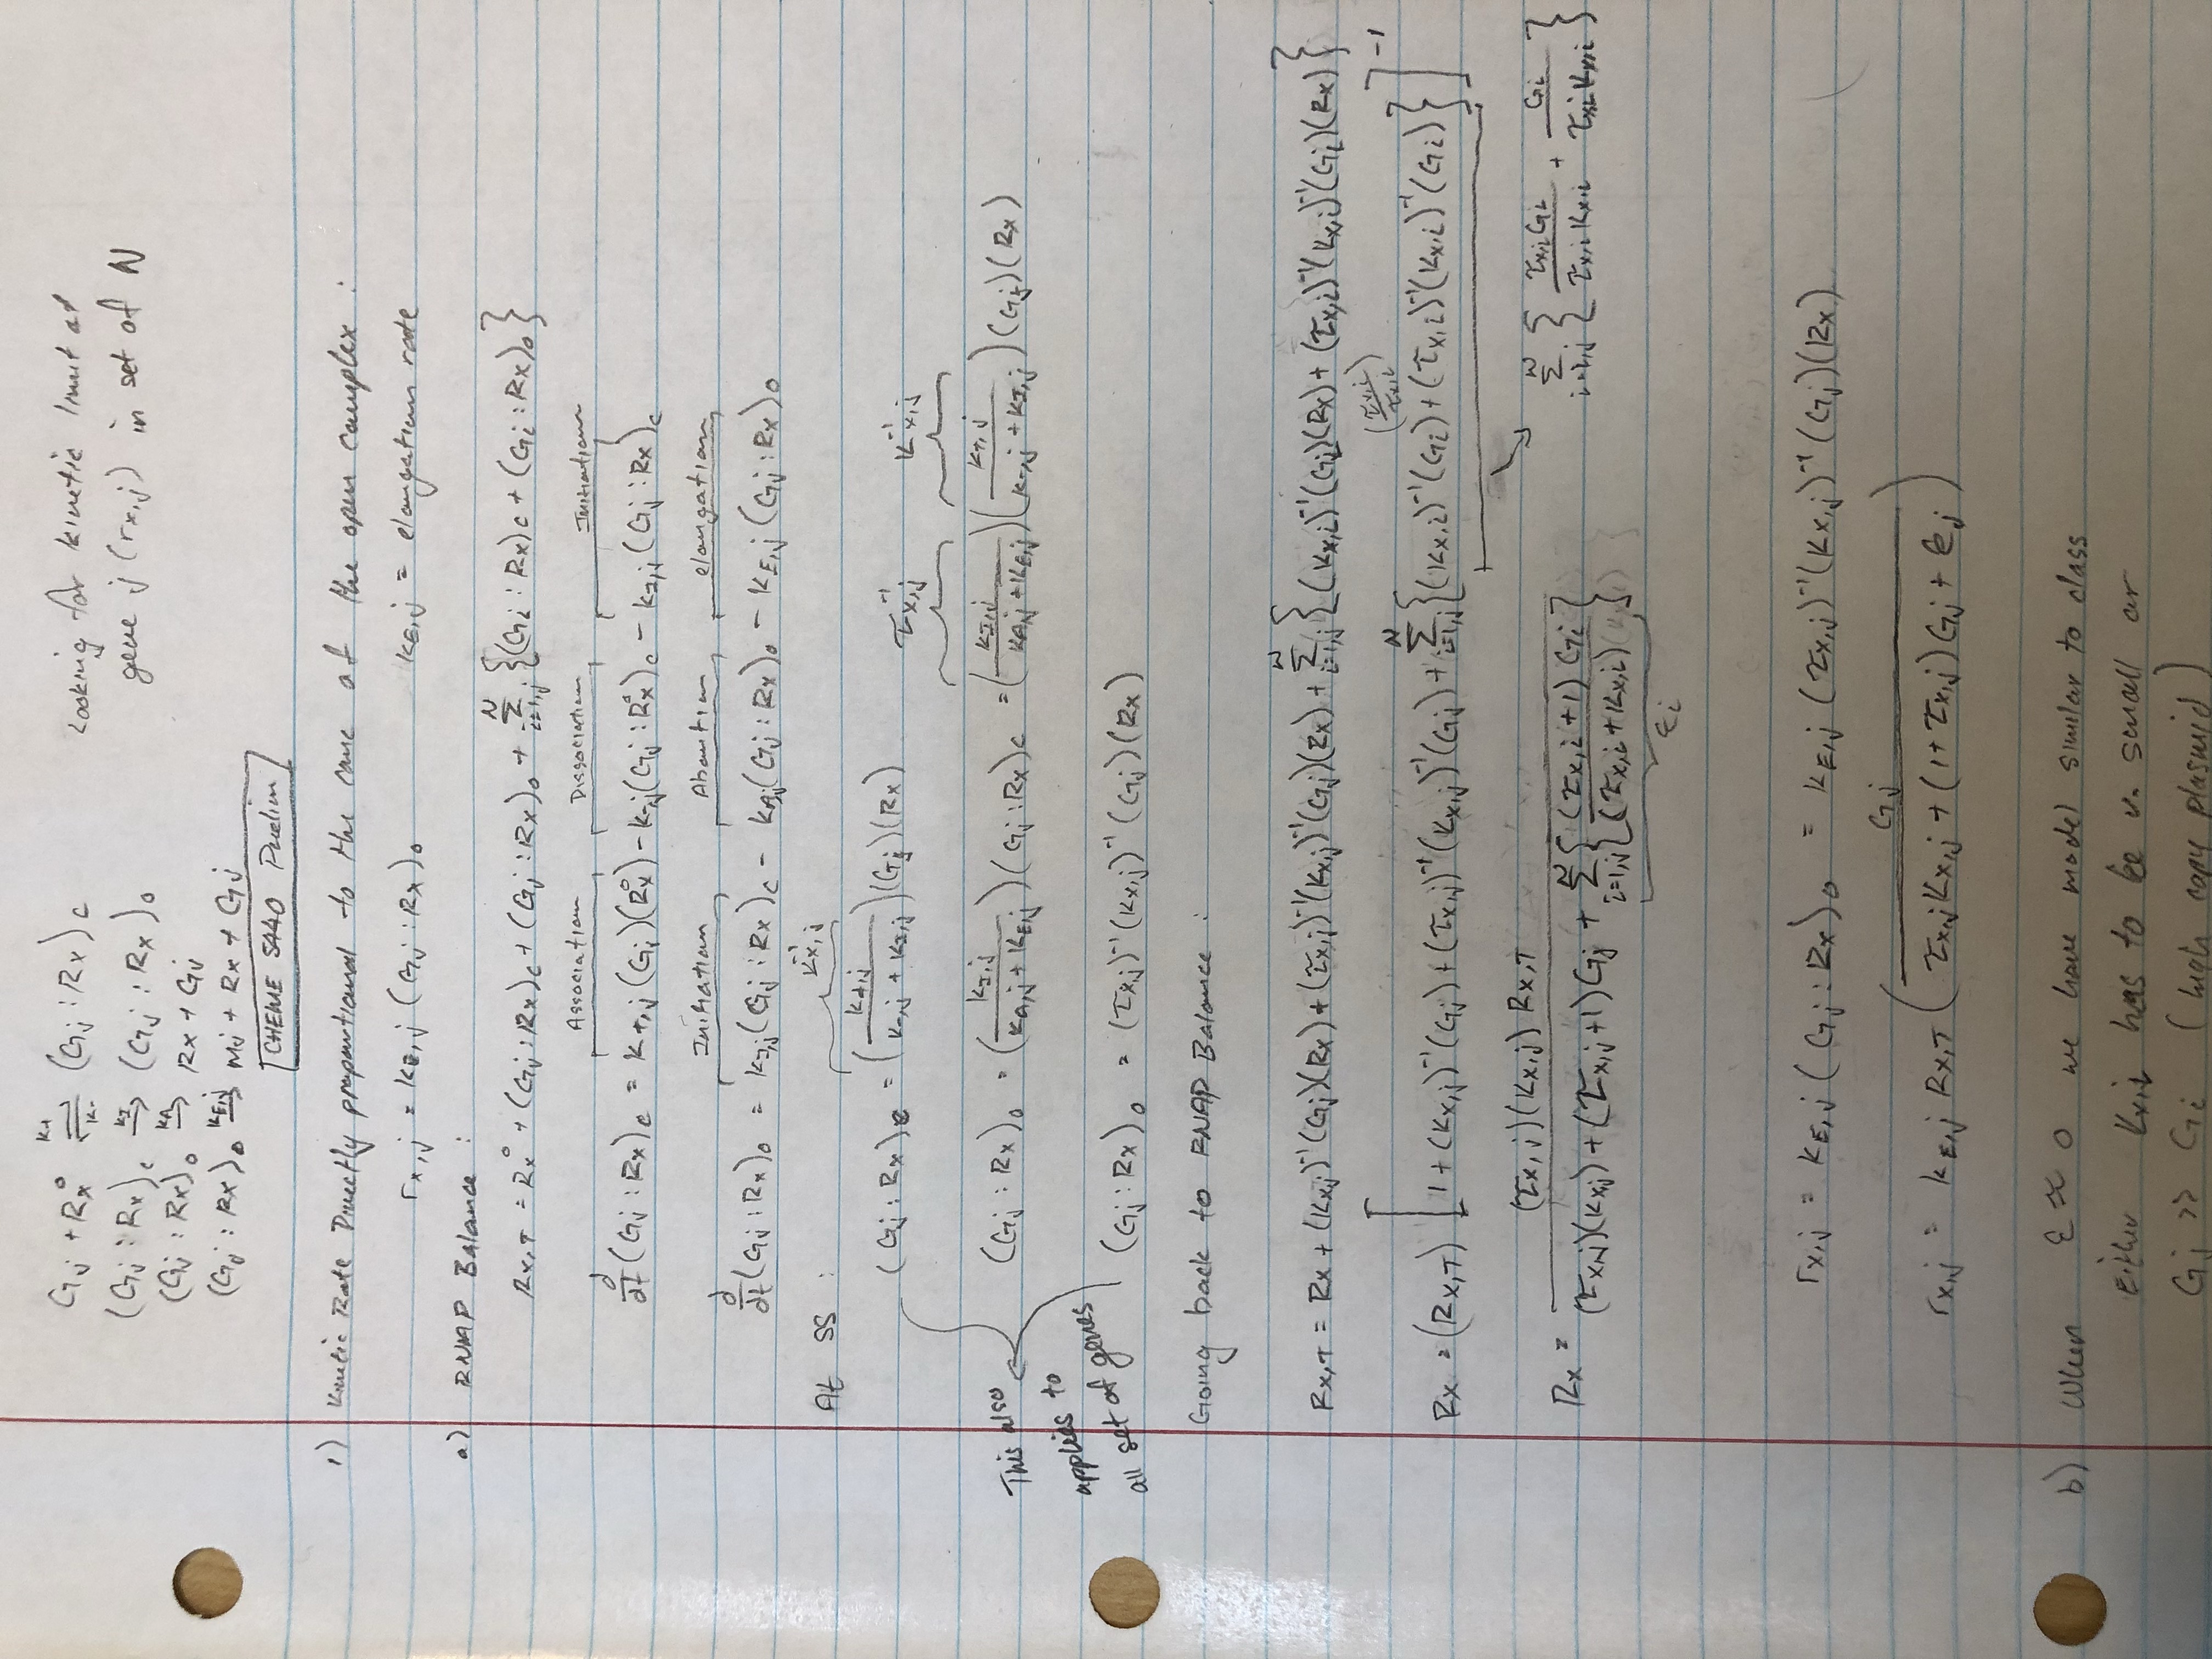 Gj + Rx° ⇌ (Gj : Rx)c   k+ k-
Looking for kinetic limit at
gene j (rx,j) in set of N
(Gj : Rx)c →kI (Gj : Rx)o
(Gj : Rx)o →kA Rx + Gj
(Gj : Rx)o →kE,j mj + Rx + Gj
CHEME 5440 Prelim
1) Kinetic Rate Directly proportional to the conc of the open complex :
rx,j = kE,j (Gj : Rx)o   kE,j = elongation rate
a) RNAP Balance :
Rx,T = Rx° + (Gj : Rx)c + (Gj : Rx)o + Σ_{i=1,j}^{N} {(Gi : Rx)c + (Gi : Rx)o}
Association Dissociation Initiation
d/dt (Gj : Rx)c = k+,j (Gj)(Rx°) - k-,j (Gj : Rx°)c - kI,j (Gj : Rx)c
Initiation Abortion elongation
d/dt (Gj : Rx)o = kI,j (Gj : Rx)c - kA,j (Gj : Rx)o - kE,j (Gj : Rx)o
At SS :
Kx,j^-1
(Gj : Rx)c = (k+,j / (k-,j + kI,j)) (Gj)(Rx)
τx,j^-1 Kx,j^-1
(Gj : Rx)o = (kI,j / (kA,j + kE,j)) (Gj : Rx)c = (kI,j / (kA,j + kE,j)) (k+,j / (k-,j + kI,j)) (Gj)(Rx)
This also
applies to
all set of genes
(Gj : Rx)o = (τx,j)^-1 (Kx,j)^-1 (Gj)(Rx)
Going back to RNAP Balance :
Rx,T = Rx + (Kx,j)^-1 (Gj)(Rx) + (τx,j)^-1 (Kx,j)^-1 (Gj)(Rx) + Σ_{i=1,j}^{N} {(Kx,i)^-1 (Gi)(Rx) + (τx,i)^-1 (Kx,i)^-1 (Gi)(Rx)}
(τx,i / τx,i)
Rx = (Rx,T) [1 + (Kx,j)^-1 (Gj) + (τx,j)^-1 (Kx,j)^-1 (Gj) + Σ_{i=1,j}^{N} {(Kx,i)^-1 (Gi) + (τx,i)^-1 (Kx,i)^-1 (Gi)}]^-1
Σ_{i=1,j}^{N} {τx,i Gi / τx,i Kx,i + Gi / τx,i Kx,i}
Rx = (τx,j)(Kx,j) Rx,T / ((τx,j)(Kx,j) + (τx,j + 1) Gj + Σ_{i=1,j}^{N} {(τx,i + 1) Gi / (τx,i + Kx,i)})
εi
rx,j = kE,j (Gj : Rx)o = kE,j (τx,j)^-1 (Kx,j)^-1 (Gj)(Rx)
rx,j = kE,j Rx,T (Gj / (τx,j Kx,j + (1 + τx,j) Gj + εj))
b) When ε ≈ 0 we have model similar to class
Either Kx,i has to be v. small or
Gj >> Gi (high copy plasmid)